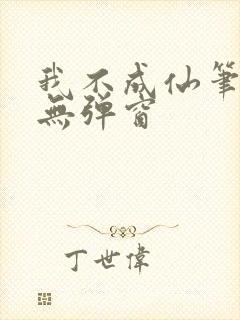 我不成仙筆
無彈窗
丁世偉